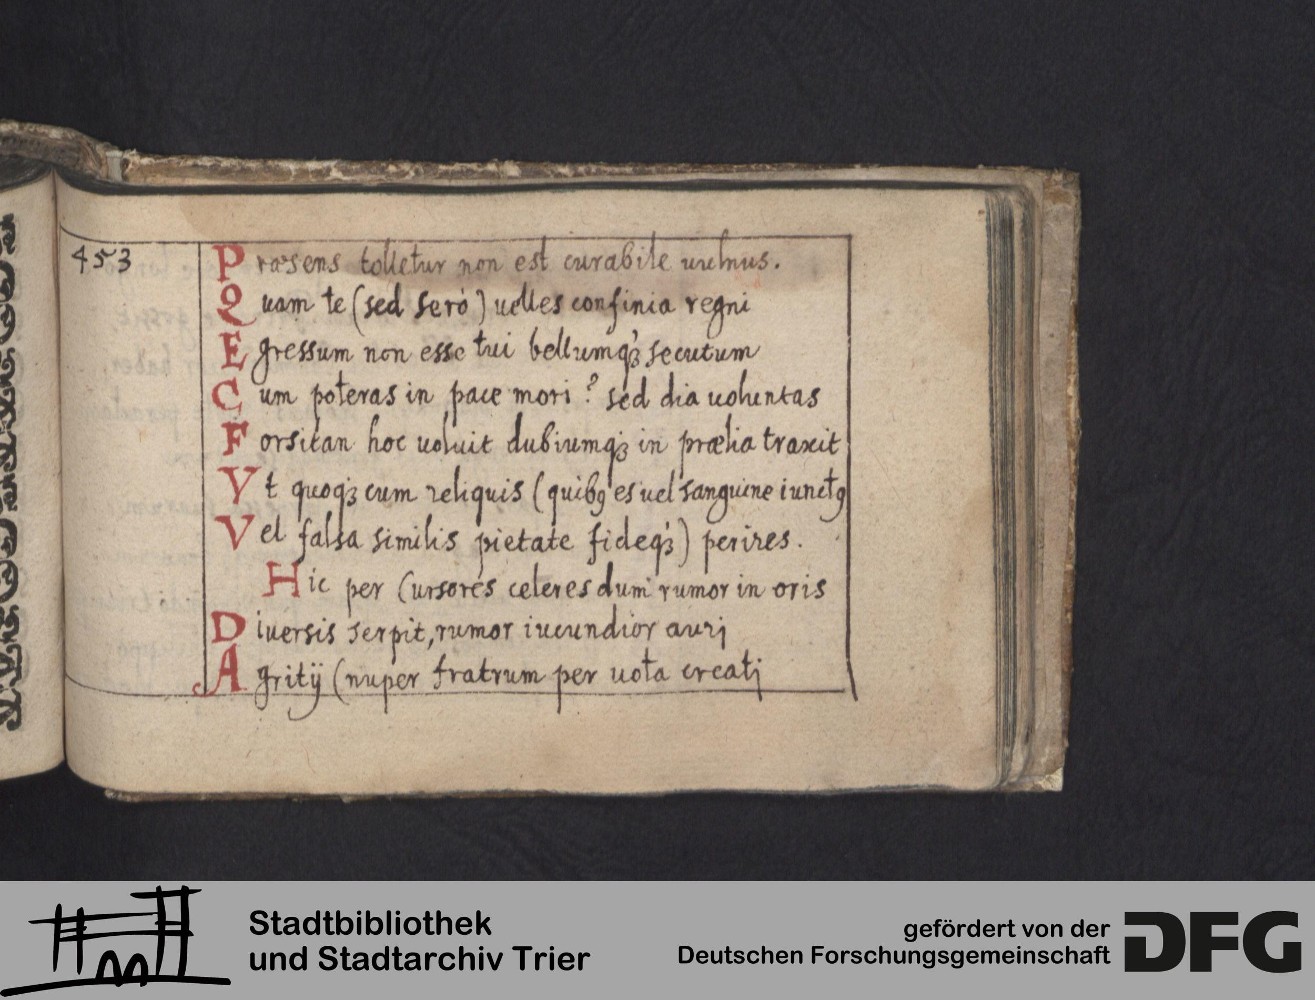 453
Præsens tolletur non est curabile uulnus.
Quam te (sed serò) uelles confinia regni
Egressum non esse tui bellumqꝫ secutum
Cum poteras in pace mori? sed dia uoluntas
Forsitan hoc uoluit dubiumqꝫ in prælia traxit
Vt quoqꝫ cum reliquis (quibꝰ es uel sanguine iunctꝰ
Vel falsa similis pietate fideqꝫ) perires.
Hic per Cursores celeres dum rumor in oris
Diuersis serpit, rumor iucundior aurj
Agritij (nuper fratrum per uota creatj
Stadtbibliothek
und Stadtarchiv Trier
gefördert von der
Deutschen Forschungsgemeinschaft
DFG